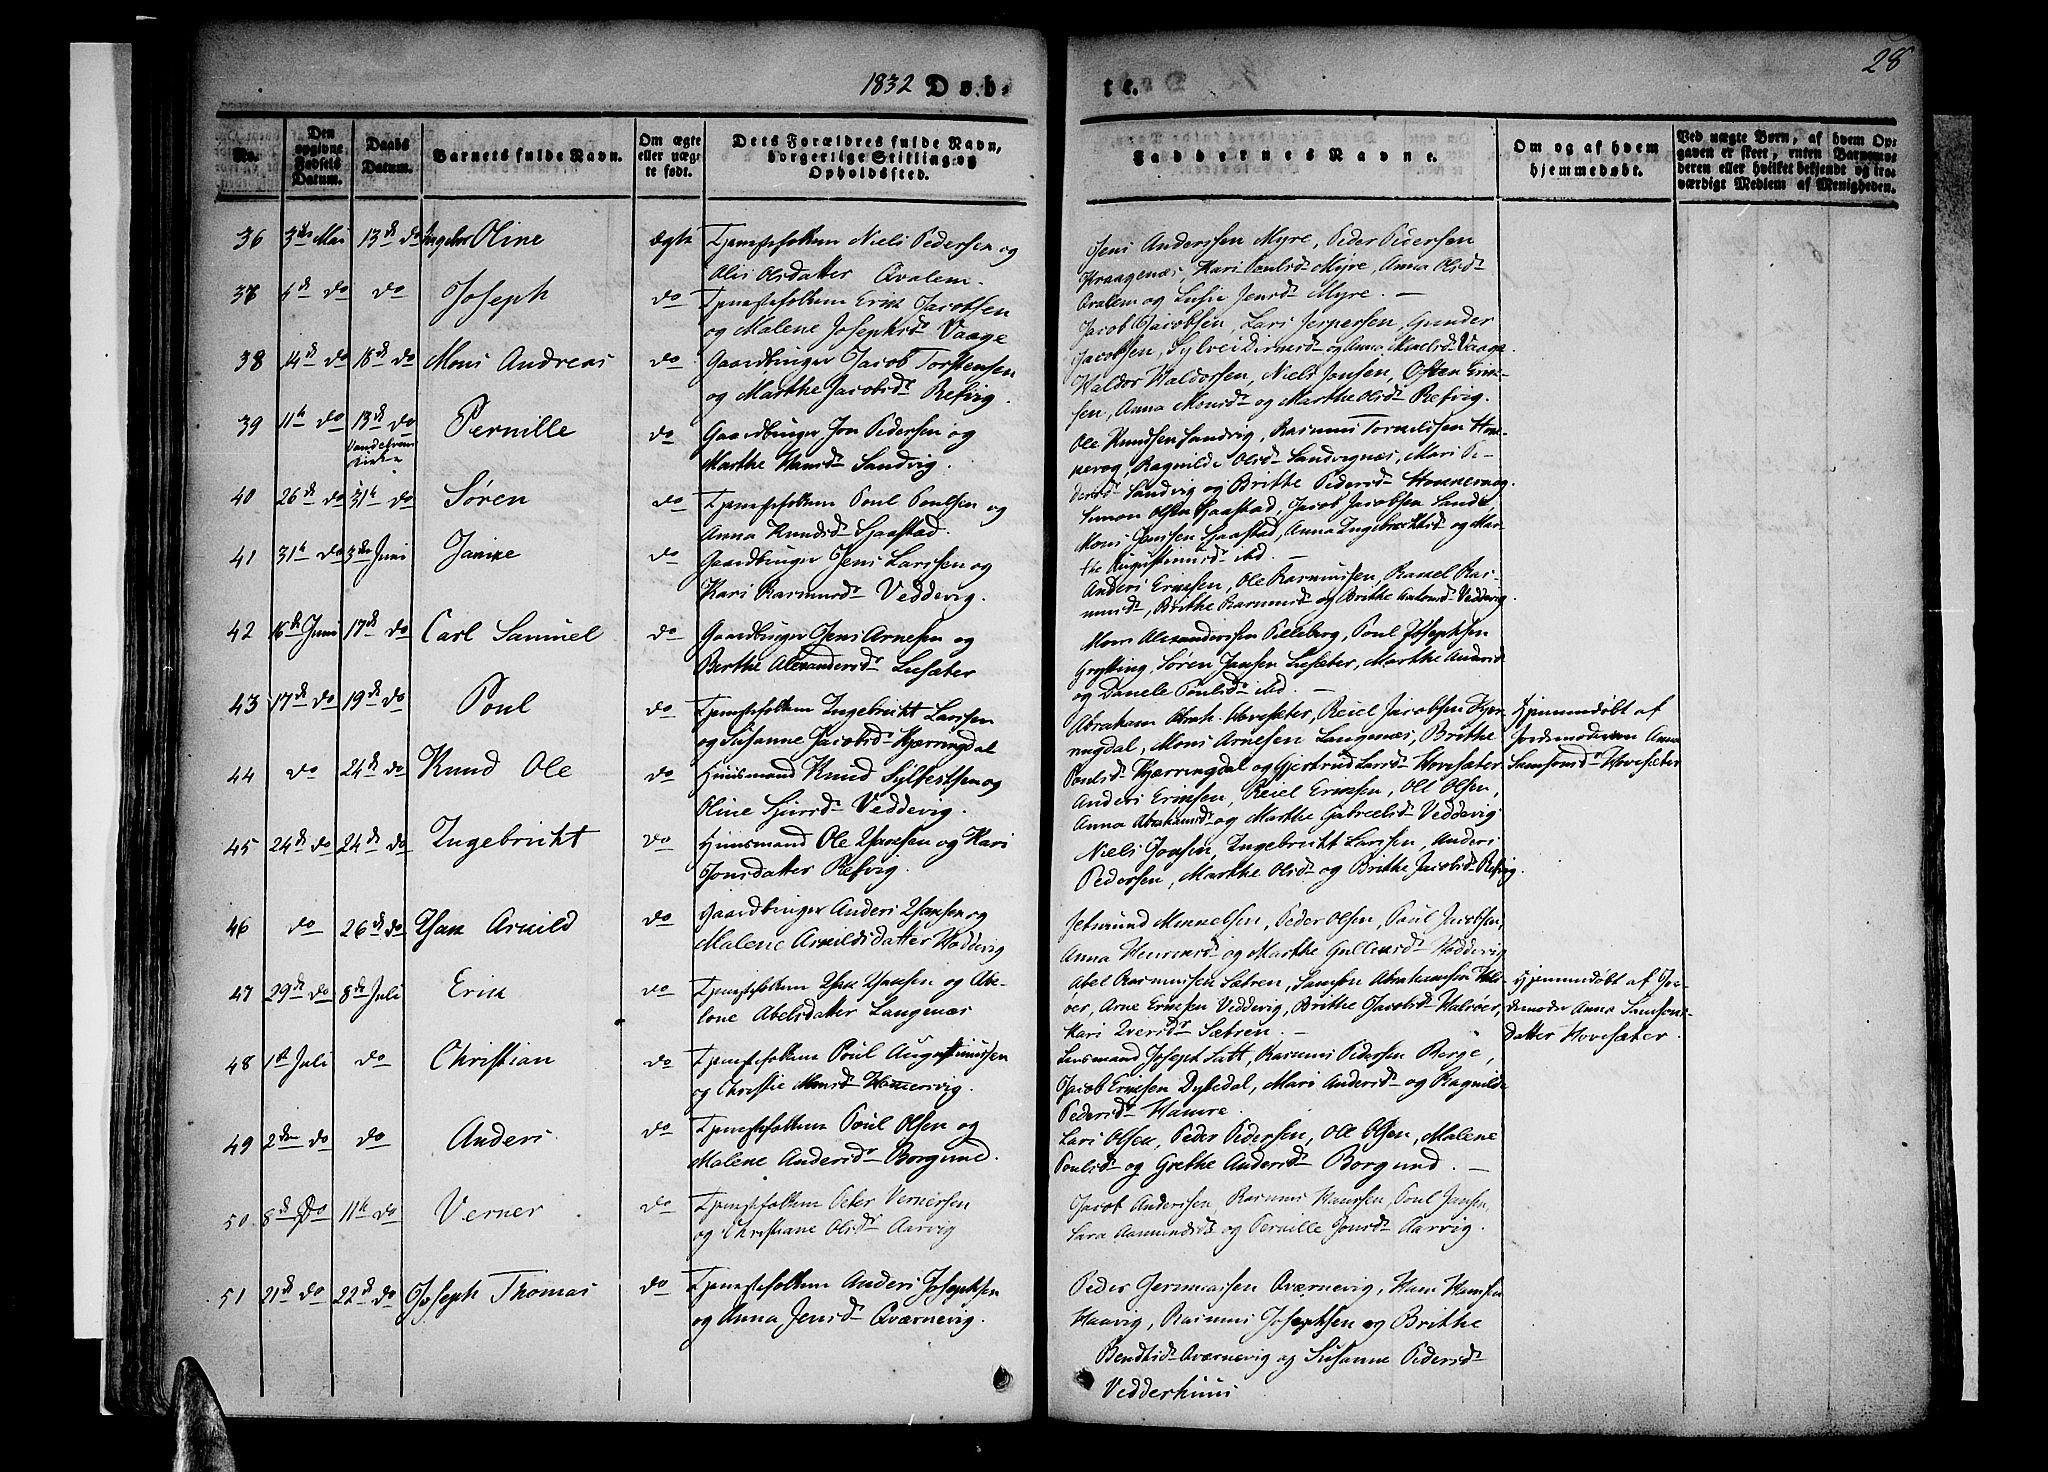 28
1832 Døb-
te.
No.
Den opgivne Fødsels Datum.
Daabs Datum.
Barnets fulde Navn.
Om ægte eller uægte født.
Dets Forældres fulde Navn, borgerlige Stilling og Opholdssted.
Faddernes Navne.
Om og af hvem hjemmedøbt.
Ved uægte Børn, af hvem Opgaven er skeet, enten Barnemoderen eller hvilket bekjendt og troværdigt Medlem af Menigheden.
36 3die Mai 13de do Ingebor Oline ægte Tjenestefolkene Niels Pedersen og
Alis Olsdatter Qvalem.
Jens Anderssen Myre, Peder Pedersen
Kraagenæs, Kari Poulsdr Myre, Anna Olsdr
Qvalem og Lusie Jensdr Myre. —
37 5de do do Joseph do Tjenestefolkene Erik Jacobsen
og Malene Josephsdr Vaage
Jacob Jacobsen, Lars Jespersen, Gunder
Jacobsen, Sylvei og Anna Vaage.
38 14de do 18de do Mons Andreas do Gaardbruger Jacob Torstensen
og Marthe Jacobsdr Refvig.
Haldor Haldorsen, Niels Jonsen, Osten Erik-
sen, Anna Monsdr og Marthe Olsdr Refvig.
39 11te do 13de do Pernille do Gaardbruger Jon Pedersen og
Kirke
Marthe Hansdr Sandvig.
Ole Knudsen Sandvig, Rasmus Hon-
nevog, Ragnilde Olsdr Sandvignæs, Mari Pe-
dersdr Sandvig og Brithe Pedersdr Honnevaag.
40 26de do 31te do Søren do Tjenestefolkene Poul Poulsen og
Anna Knudsdr Gaastad.
Simon Olsen Gaastad, Jacob Jacobsen Sande,
Mons Jonssen Gaastad, Anna Ingebrechtsdr og Mar-
the Augustinusdr ibid. —
41 31te do 3die Juni Janike do Gaardbruger Jens Larssen og
Kari Rasmusdr Veddevig.
Anders Eriksen, Ole Rasmussen, Ras-
musdr, Brithe Rasmusdr og Brithe Veddevig.
42 16de Juni 17de do Carl Samuel do Gaardbruger Jens Arnesen og
Berthe Alexandersdr Lisæter
Mons Alexandersen Pilleberg, Poul Josephsen
Grytting, Søren Jansen Lisæter, Marthe Andersdr
og Danele Poulsdr ibid. —
43 17de do 19de do Poul do Tjenestefolkene Ingebricht Larssen
og Susanne Jacobsdr Kjærringdal
Abraham Abrah. Hovesæter, Reiel Jacobsen Kjær-
ringdal, Mons Arnesen Langenæs, Brithe
Poulsdr Kjærringdal og Gjertrud Larsdr Hovesæter
Hjemmedøbt af
Jordemoderen Anna
Samsonsdr Hovesæter
44 do 24de do Knud Ole do Huusmand Knud Sylfestsen og
Oline Sjursdr Veddevig.
Anders Eriksen, Reiel Eriksen, Ole Olsen,
Anna Abrahamsdr og Marthe Gabrielsdr Veddevig
45 24de do 24de do Ingebricht do Huusmand Ole Hansen og Kari
Jonsdatter Refvig.
Niels Jonsen, Ingebricht Larssen, Anders
Pedersen, Marthe Olsdr og Brithe Jacobsdr Refvig.
46 do 26de do Isak Arnild do Gaardbruger Anders Isaksen og
Malene Arnildsdatter Hoddevig
Jetmund Mennelsen, Peder Olsen, Poul Jacobsen,
Anna og Marthe Hoddevig
47 29de do 8de Juli Erik do Tjenestefolkene Isak Isaksen og Abe-
lone Abelsdatter Langenæs
Abel Rasmussen Sætren, Samson Abrahamsen Hal-
øer, Arne Eriksen Veddevig, Brithe Jacobsdr Haløer,
Kari Iversdr Sætren. —
Hjemmedøbt af Jor-
demoder Anna Samsons-
datter Hovesæter.
48 1ste Juli do Christian do Tjenestefolkene Poul Augustinussen
og Christie Hamersvig.
Lensmand Joseph Satt, Rasmus Pedersen Berge,
Jacob Eriksen Dybedal, Mari Andersdr og Ragnilde
Pedersdr Hamre.
49 2den do do Anders do Tjenestefolkene Poul Olsen og
Malene Andersdr Borgund.
Lars Olsen, Peder Pedersen, Ole Olsen, Malene
Poulsdr og Grethe Andersdr Borgund. —
50 8de do 11te do Verner do Tjenestefolkene Peter Vernersen
og Christiane Olsdr Aarvig
Jacob Andersen, Rasmus Hanssen, Poul Jansen,
Lara Aamundsdr og Pernille Jonsdr Aarvig.
51 21de do 22de do Joseph Thomas do Tjenestefolkene Anders Josephsen
og Anna Jensdr Qværnevig.
Peder Jeremiassen Qværnevig, Hans Hansen
Haavig, Rasmus Josephsen og Brithe
Bendtsdr Qværnevig og Susanne Pedersdr
Vedderhuus